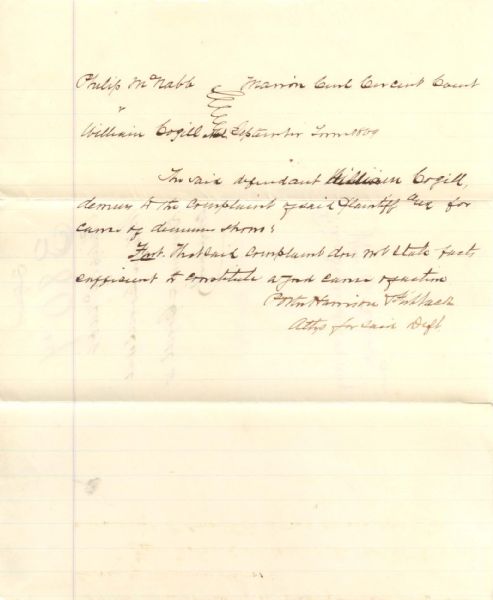 Philip McNabb Marion Civil Circuit Court
vs
William Cogill September Term 1869
The said defendant William Cogill,
demurs to the complaint of said plaintiff and for
cause of demurrer shows:
First. That said complaint does not state facts
sufficient to constitute a good cause of action
Porter Harrison & Fishback
Attys for said Deft